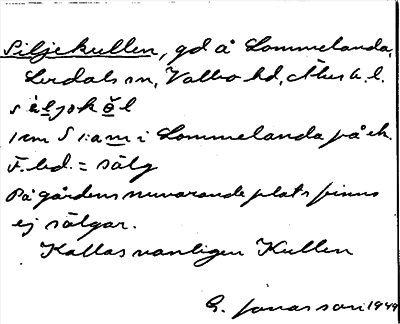 Siljekullen, gd å Lommelanda,
Lerdals sn, Valbo hd, Älvs b. l.
1 cm S 1:a m i Lommelanda på ek.
F. led. = sälg
På gårdens nuvarande plats finns
ej sälgar.
Kallas vanligen Kullen
G. Jonasson 1949